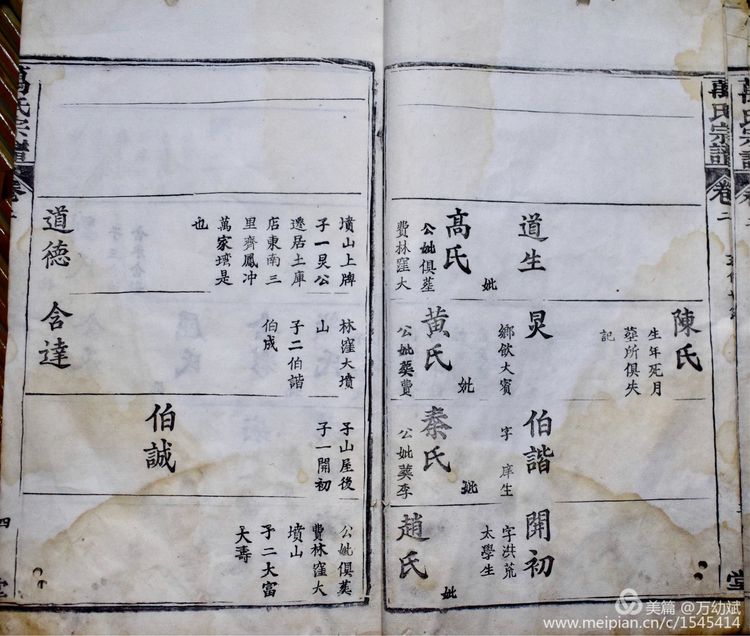 萬氏宗譜
卷二
堂
陳氏
生年死月
塟所俱失
記
道生
妣
高氏
公妣俱塟
費林窪大
墳山上牌
子一炅公
遷居土庫
店東南三
里齊鳳冲
萬家塆是
也
道德
炅
鄉飲大賓
妣
黃氏
公妣葬費
林窪大墳
山
子二伯諧
伯成
含達
伯諧
字
庠生
妣
秦氏
公妣葬李
子山屋後
子一開初
伯誠
開初
字洪荒
太學生
妣
趙氏
公妣俱葬
費林窪大
墳山
子二大富
大壽
萬氏宗譜
四
堂
美篇 @万幼斌
www.meipian.cn/c/1545414